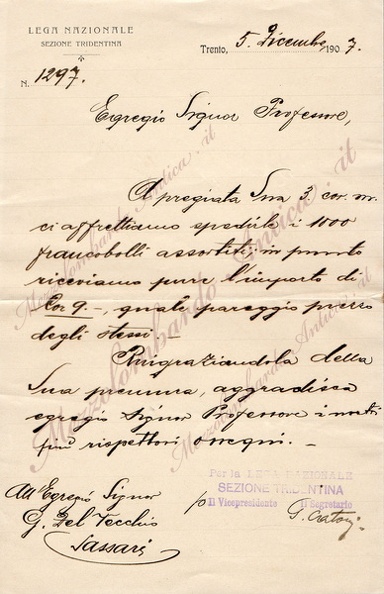 LEGA NAZIONALE
SEZIONE TRIDENTINA
Trento, 5. Dicembre 1907.
N. 1297.
Egregio Signor Professore,
A pregiata Sua 3. cor. m.
ci affrettiamo spedirle i 1000
francobolli assortiti; in punto
riceviamo pure l'importo di
Cor 9.-, quale pareggio prezzo
degli stessi.-
Ringraziandola della
Sua premura, aggradisca
egregio Signor Professore i nostri
più rispettosi ossequi. -
Per la LEGA NAZIONALE
SEZIONE TRIDENTINA
p Il Vicepresidente Il Segretario
All'Egregio Signor
G. Del Vecchio
Sassari
MezzolombardoAntica.it
MezzolombardoAntica.it
MezzolombardoAntica.it